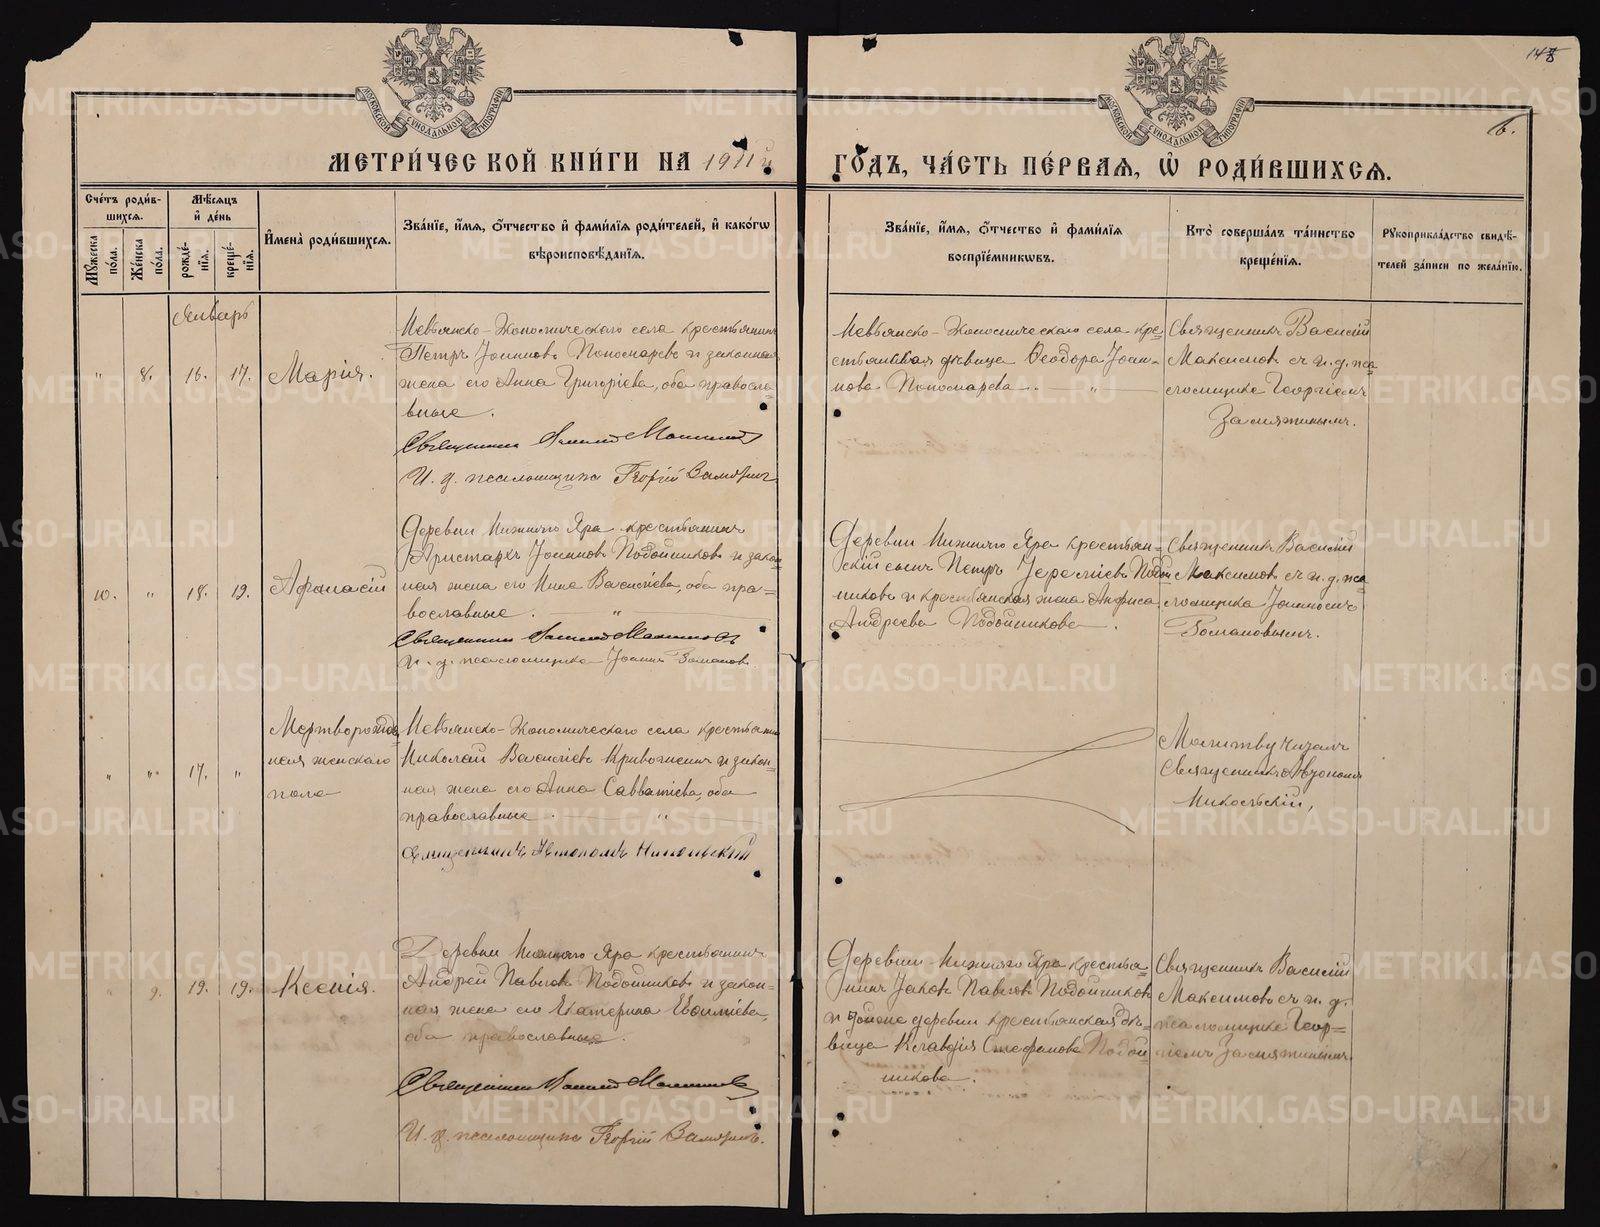 148
6.
МОСКОВСКОЙ СѴНОДАЛЬНОЙ ТИПОГРАФІИ
МОСКОВСКОЙ СѴНОДАЛЬНОЙ ТИПОГРАФІИ
МЕТРИ́ЧЕСКОЙ КНИ́ГИ НА 1911й ГО́ДЪ, ЧА́СТЬ ПЕ́РВАѦ, Ѡ҆ РОДИ́ВШИХСѦ.
Сче́тъ роди́в-
шихсѧ.
Мꙋ́жеска по́ла.
Же́нска по́ла.
Мѣ́сѧцъ
и҆ де́нь
рожде́-
нїѧ.
креще́-
нїѧ.
И҆мена̀ роди́вшихсѧ.
Зва́нїе, и҆́мѧ, ѻ҆́тчество и҆ фами́лїѧ роди́телей, и҆ како́гѡ
вѣроисповѣ́данїѧ.
Зва́нїе, и҆́мѧ, ѻ҆́тчество и҆ фами́лїѧ
воспрїе́мникѡвъ.
Кто̀ соверша́лъ та́инство
креще́нїѧ.
Рꙋкоприкла́дство свидѣ́-
телей за́писи по жела́нїю.
Январь
" 8. 16. 17. Марія.
Невьянско-Экономическаго села крестьянинъ
Петръ Іоанновъ Пономаревъ и законная
жена его Анна Григоріева, оба правосла-
вные.
Священникъ Василій Максимовъ
И. д. псаломщика Георгій Замятинъ
Невьянско-Экономическаго села кре-
стьянская дѣвица Ѳеодора Іоан-
нова Пономарева. "
Священникъ Василій
Максимовъ съ и. д. пса-
ломщика Георгіемъ
Замятинымъ.
10. " 18. 19. Аѳанасій
Деревни Нижняго Яра крестьянинъ
Аристархъ Іоанновъ Подойниковъ и закон-
ная жена его Нина Василіева, оба пра-
вославные. "
Священникъ Василій Максимовъ
И. д. псаломщика Іоаннъ
Деревни Нижняго Яра крестьян-
скій сынъ Петръ Іереміевъ Подой-
никовъ и крестьянская жена Анфиса
Андреева Подойникова.
Священникъ Василій
Максимовъ съ и. д. пса-
ломщика Іоанномъ
" " 17. " Мертворожден-
ная женскаго
пола
Невьянско-Экономическаго села крестьянинъ
Николай Василіевъ и закон-
ная жена его Анна Савватіева, оба
православные. "
Священникъ Автономъ Никольскій
Молитву читалъ
Священникъ Автономъ
Никольскій,
9. 19. 19. Ксенія.
Деревни Нижняго Яра крестьянинъ
Андрей Павловъ Подойниковъ и закон-
ная жена его Екатерина Евѳиміева,
оба православные.
Священникъ Василій Максимовъ
И. д. псаломщика Георгій Замятинъ.
Деревни Нижняго Яра крестья-
нинъ Іаковъ Павловъ Подойниковъ
и деревни крестьянская дѣ-
вица Клавдія Стефанова Подой-
никова.
Священникъ Василій
Максимовъ съ и. д.
псаломщика Геор-
гіемъ Замятинымъ.
METRIKI.GASO-URAL.RU